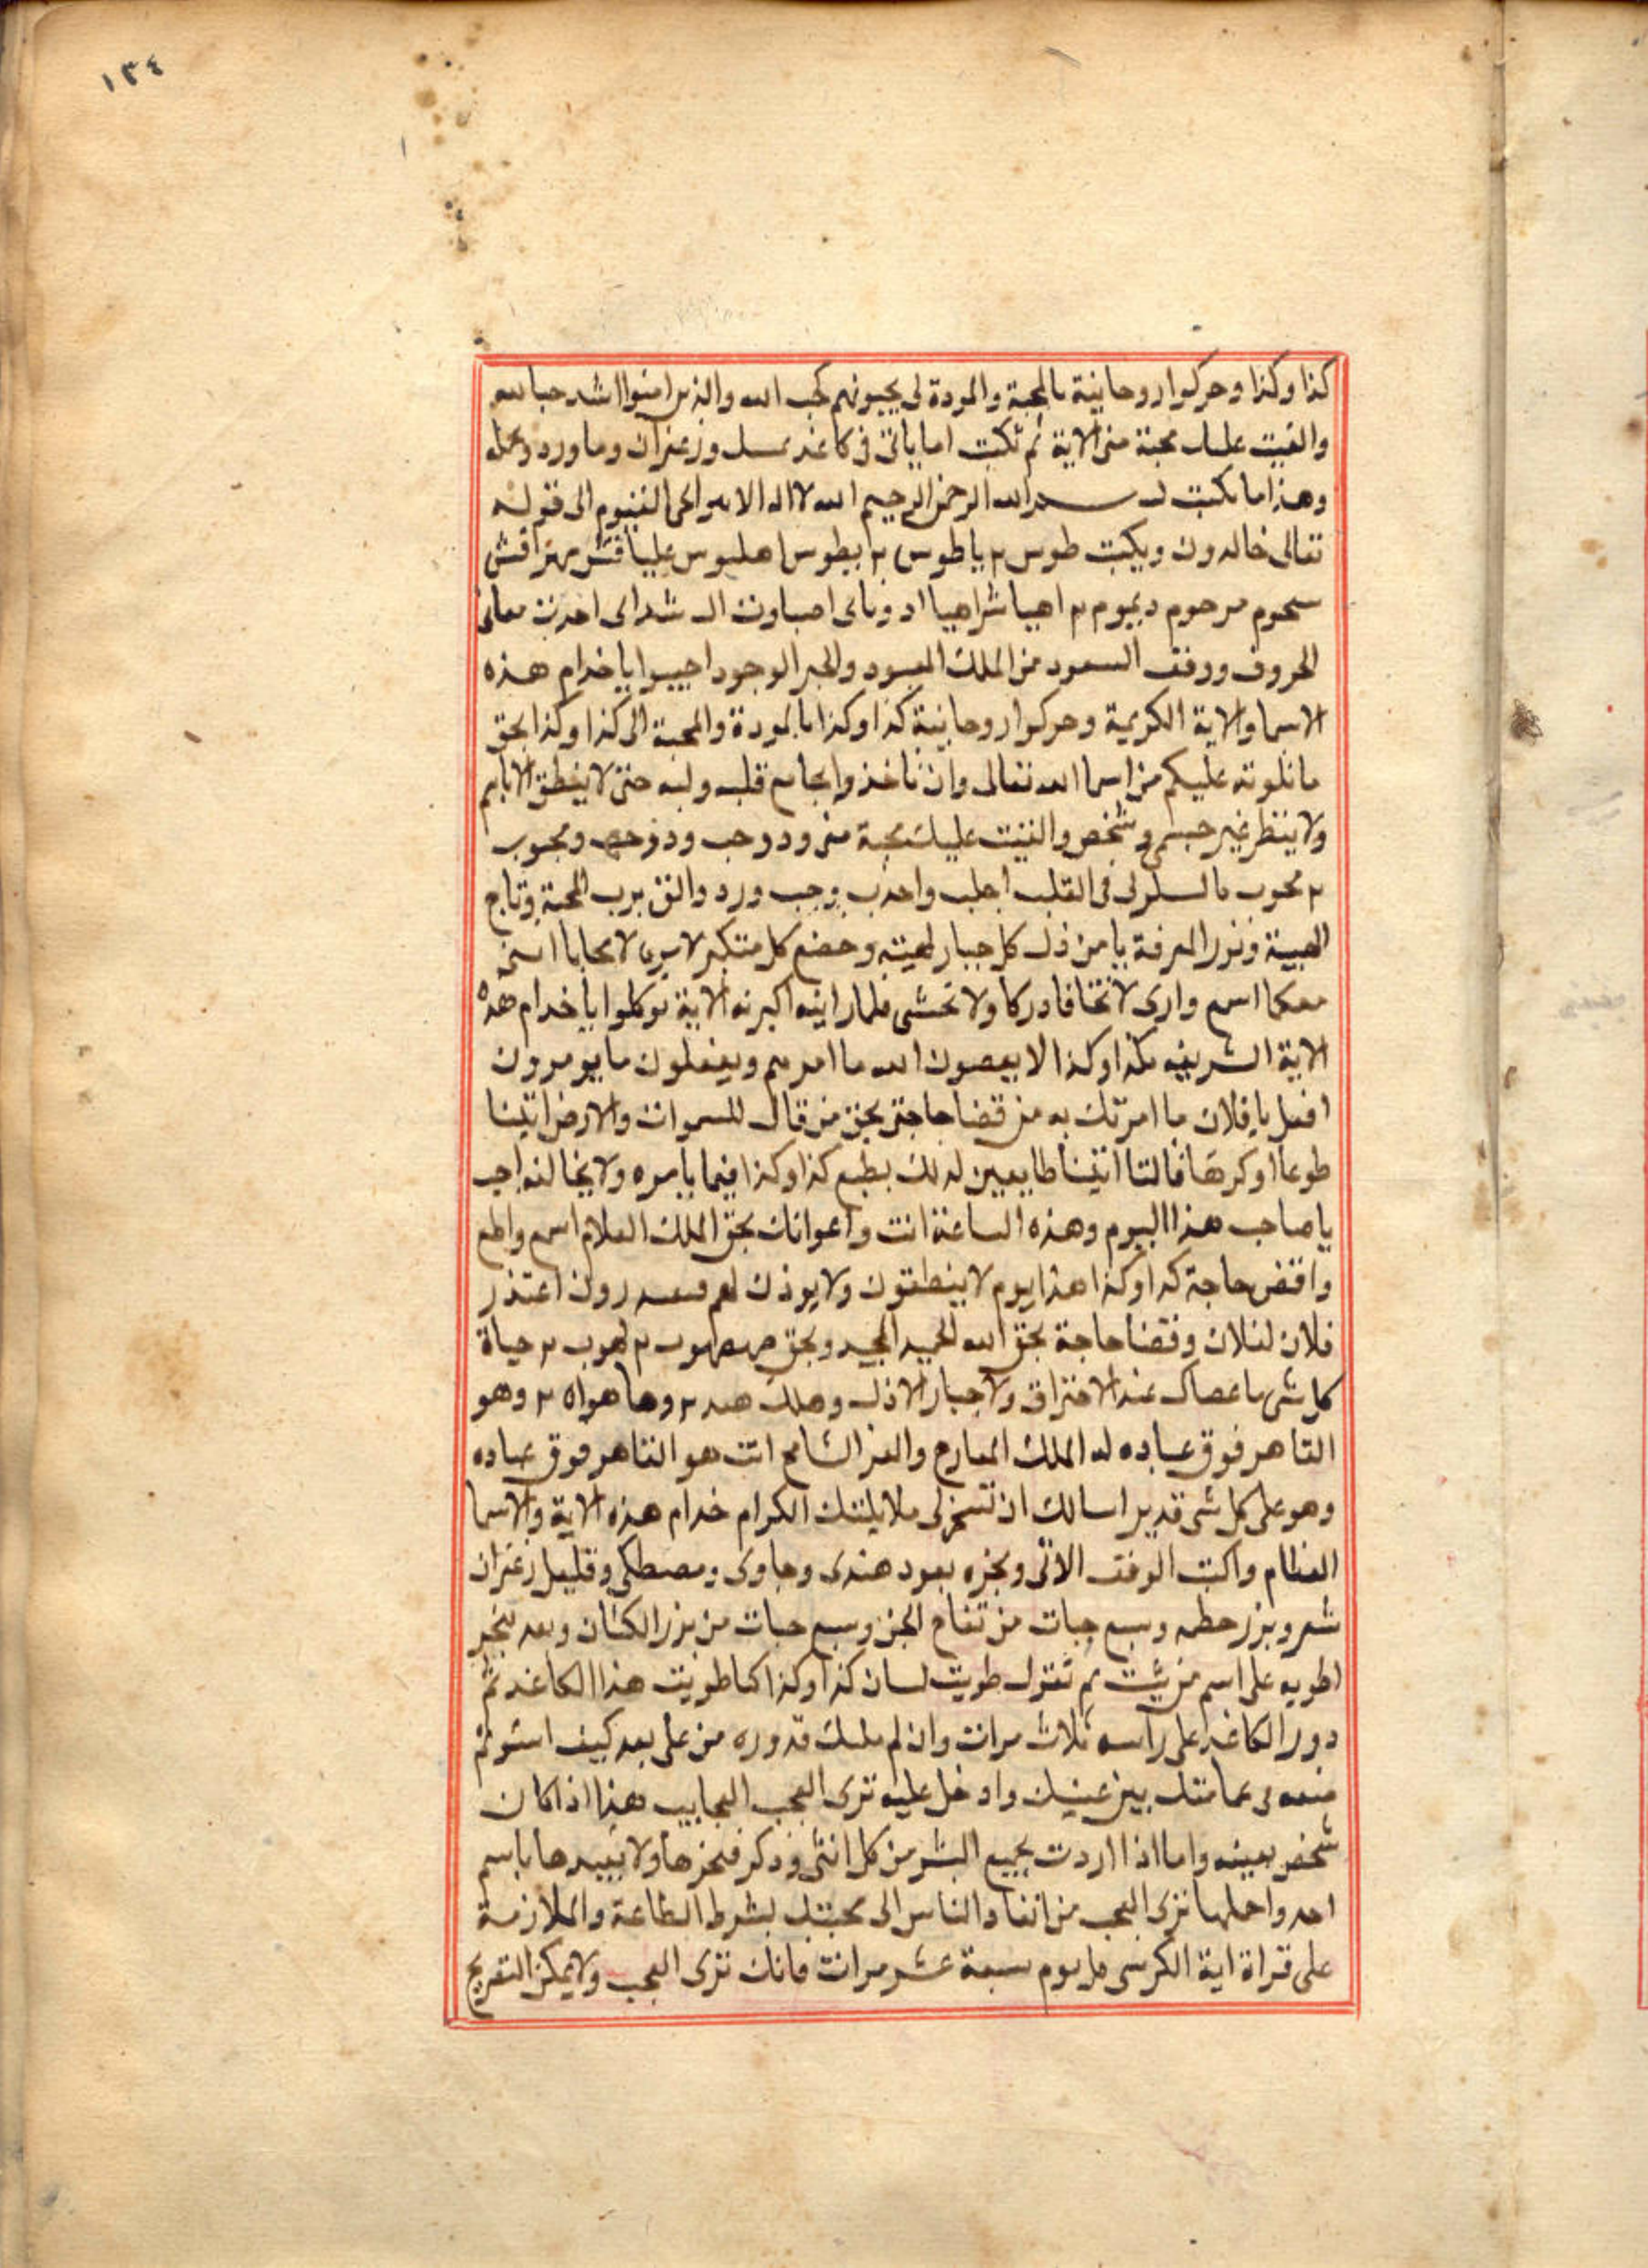 ١٣٤
كذا وكذا وحركوا روحانية بالمحبة والمودة لى يحبونهم كحب الله والذين امنوا اشد حبا لله
والقيت عليك محبة منى الاية ثم تكتب اما ياتى فى كاغد بمسك وزعفران وما ورد
وهذا ما تكتب بسم الله الرحمن الرحيم الله لا اله الا هو الحى القيوم الى قوله
تعالى خالدون ويكتب طوس ٢ ياطوس ٢ ابطوس اهلبوس عليا قش مهراقش
مرحوم ديموم ٢ اهيا شراهيا ادوناى اصباوت ال شداى معانى
الحروف ووفق السعود من الملك المعبود والخبر الوجود اجيبوا يا خدام هذه
الاسما والاية الكريمة وحركوا روحانية كذا وكذا بالمودة والمحبة الى كذا وكذا بحق
ما تلوته عليكم من اسما الله تعالى وان تاخذوا بجامع قلبه ولبه حتى لا ينطق الا باسم
ولا ينظر غير جسمى وشخصى والقيت عليك محبة منى ود وحب ود ومحبوب
٢ محبوب فى القلب اجلب واجذب وجب ورد والق برب المحبة وتاج
الهيبة ونور المعرفة يا من ذل كل جبار لهيبته وخضع كل متكبر لا تخافا اننى
معكما اسمع وارى لا تخاف دركا ولا تخشى فلما راينه اكبرنه الاية توكلوا يا خدام هذه
الاية الشريفه بكذا وكذا لا يعصون الله ما امرهم ويفعلون ما يومرون
افعل يا فلان ما امرتك به من قضا حاجتى بحق من قال للسموات والارض ائتيا
طوعا او كرها قالتا اتينا طايعين لذلك يطيع كذا وكذا فيما يامره ولا يخالفه اجب
يا صاحب هذا اليوم وهذه الساعة انت واعوانك بحق الملك العلام اسمع واطع
واقض حاجة كذا وكذا هذا يوم لا ينطقون ولا يوذن لهم فيعتذرون اعتذر
فلان لفلان وقضا حاجة بحق الله الحميد المجيد وبحق صهصهوب ٢ لهوب ٢ حياة
كل شى ما عصاك عند الاحتراق ولا جبار الا ذل وهلك ٢ وها هواه ٢ وهو
القاهر فوق عباده له الملك والعز الشامخ انت هو القاهر فوق عباده
وهو على كل شى قدير اسالك ان تسخر لى ملايكتك الكرام خدام هذه الاية والاسما
العظام واكتب الوفق الاتى وبخره بعود هندى وجاوى ومصطكى وقليل زعفران
شعر وبزر وسبع حبات من تفاح الجن وسبع حبات من بزر الكتان وبعد تبخير
اطويه على اسم من شيت ثم تقول طويت لسان كذا وكذا كما طويت هذا الكاغد ثم
دور الكاغد على راسه ثلاث مرات وان لم قدوره من على بعد كيف استو ثم
ضعه فى عمامتك بين عينيك وادخل عليه ترى العجب العجايب هذا اذا كان
شخص بعينه واما اذا اردت جميع البشر من كل انثى وذكر فبخرها ولا تقيدها باسم
احد واحملها ترى العجب من انقاد الناس الى محبتك بشرط الطاعة والملازمة
على قراة اية الكرسى كل يوم سبعة عشر مرات فانك ترى العجب ولا يمكن التصريح